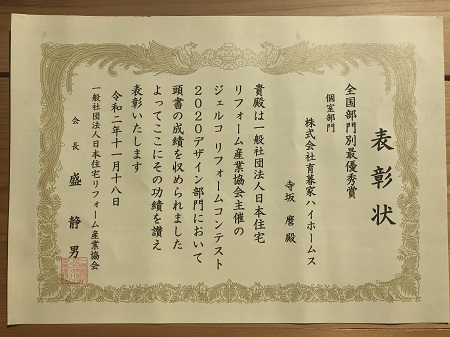 表彰状
全国部門別最優秀賞
個室部門
株式会社育暮家ハイホームス
寺坂 麿 殿
貴殿は一般社団法人日本住宅
リフォーム産業協会主催の
ジェルコ リフォームコンテスト
2020デザイン部門において
頭書の成績を収められました
よってここにその功績を讃え
表彰いたします
令和二年十一月十八日
一般社団法人日本住宅リフォーム産業協会
会長 盛 静男